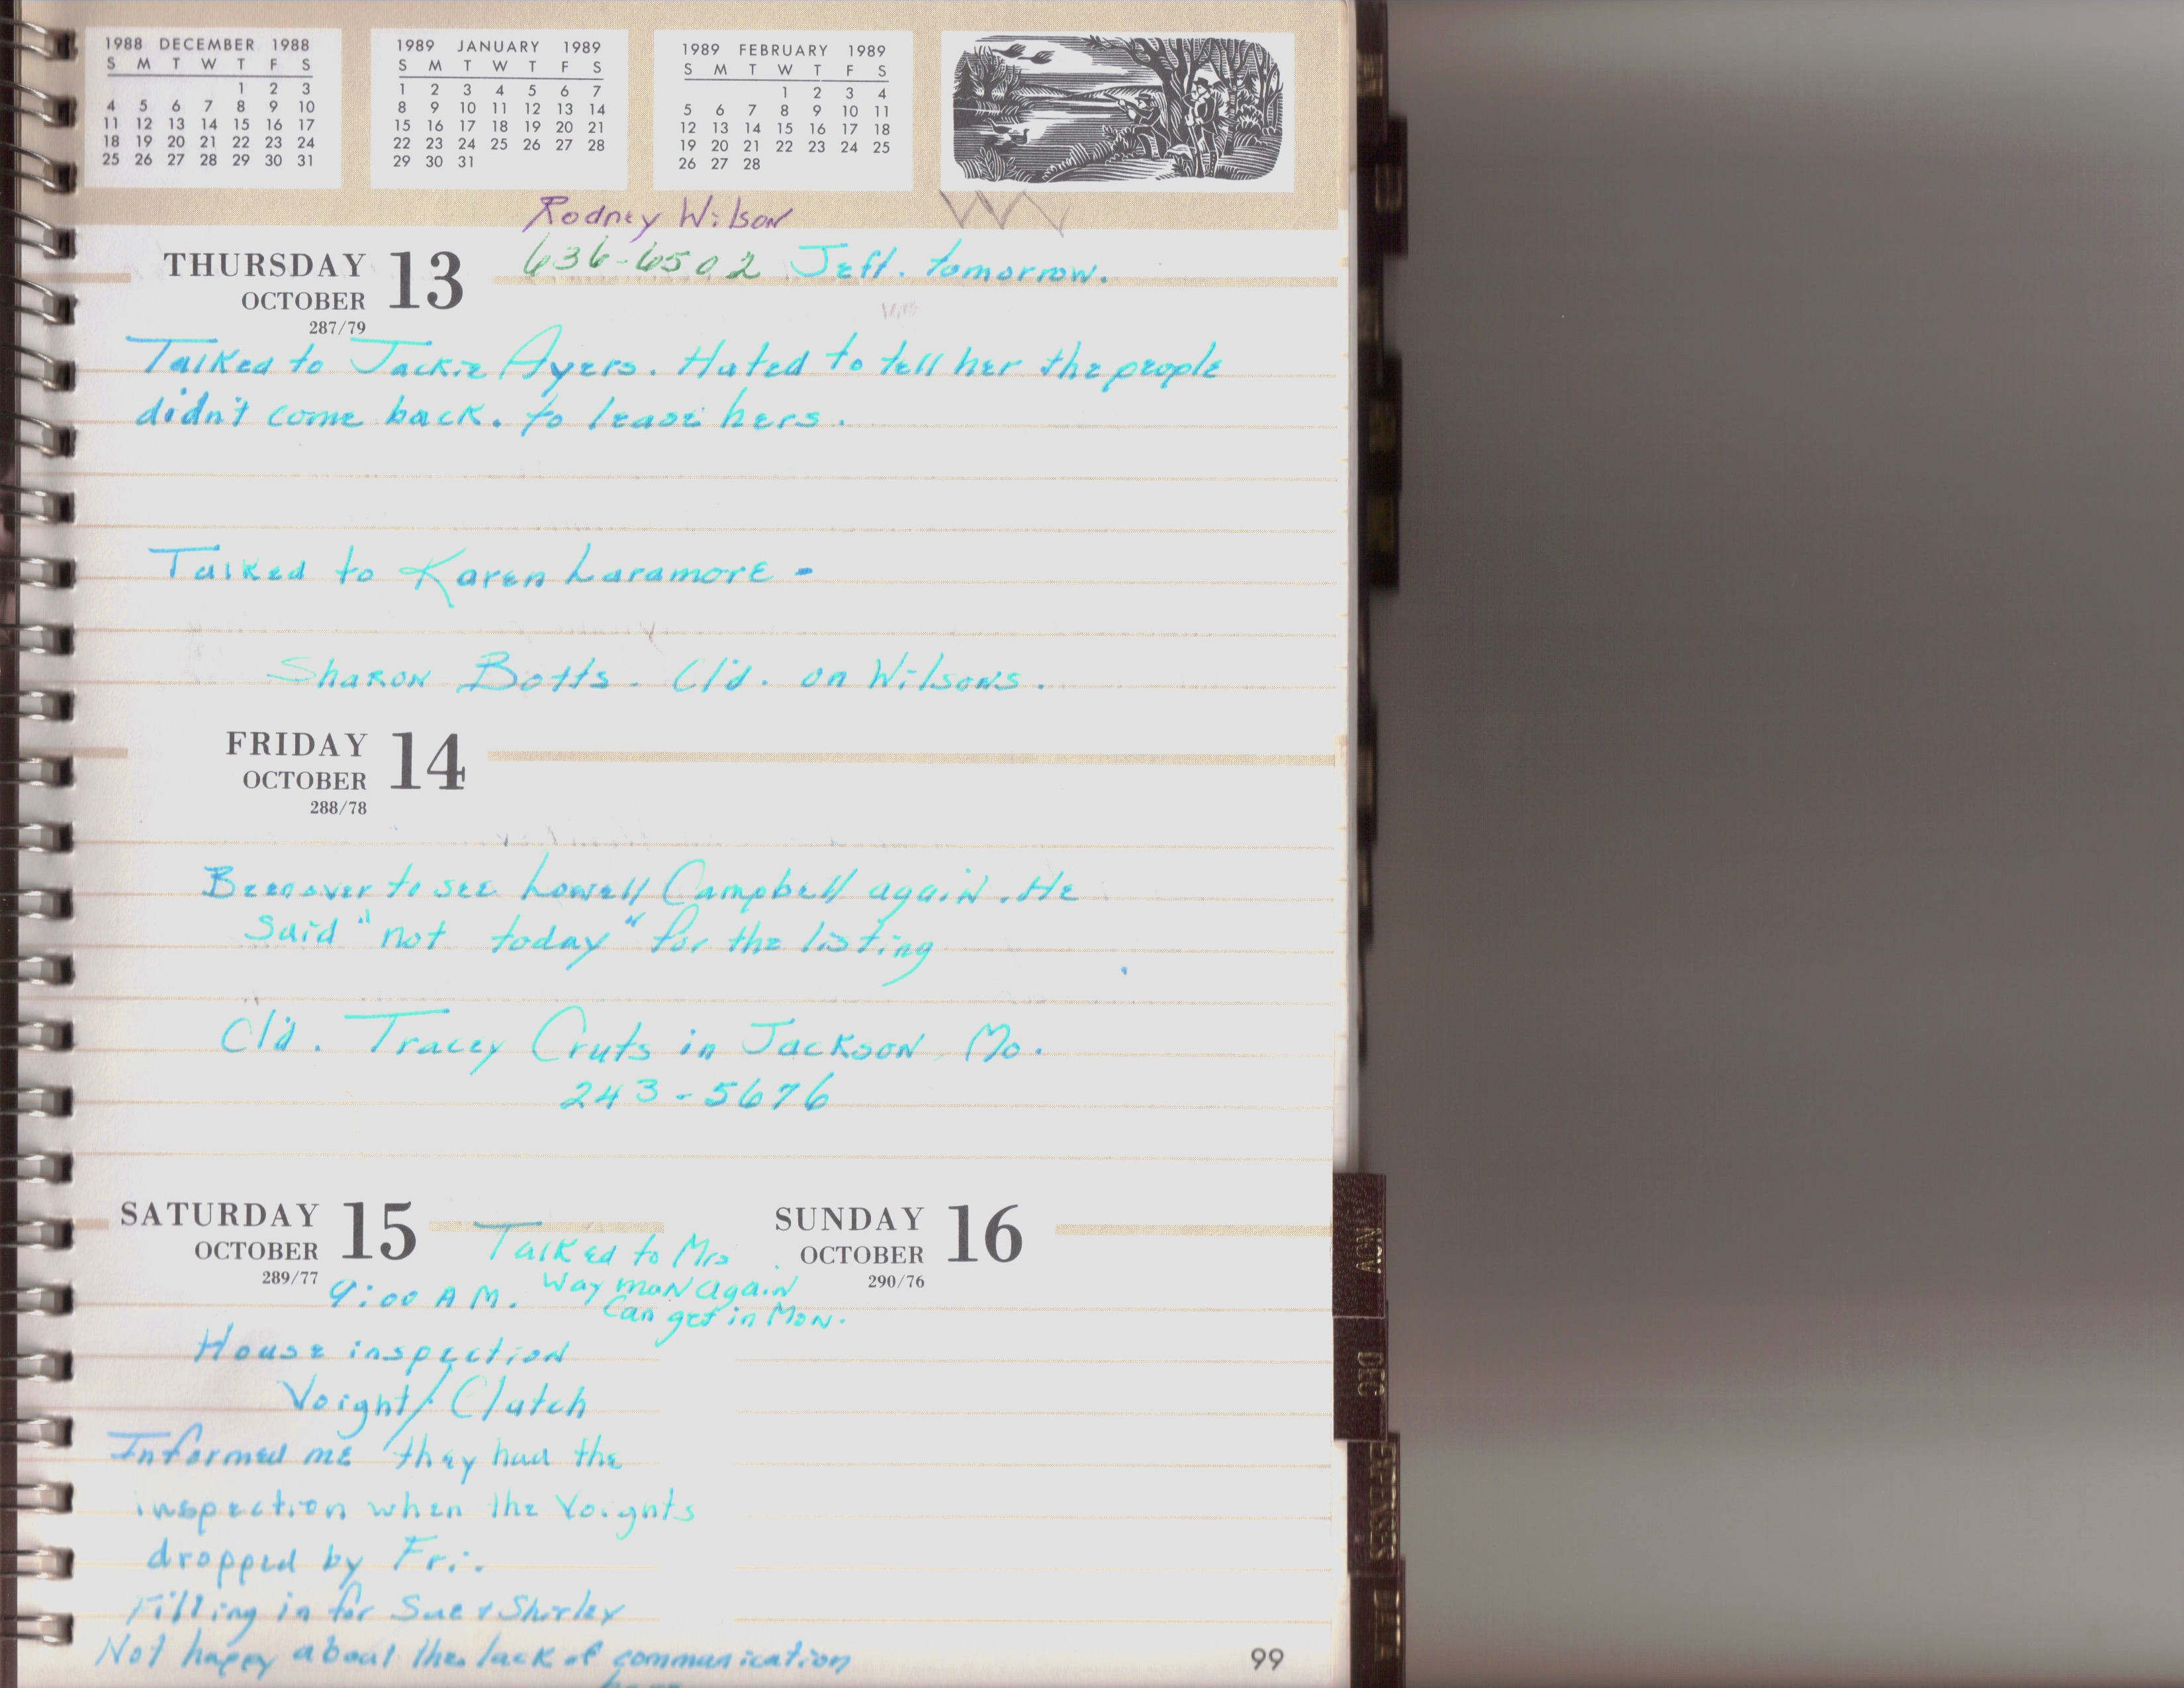 1988 DECEMBER 1988
S M T W T F S
1 2 3
4 5 6 7 8 9 10
11 12 13 14 15 16 17
18 19 20 21 22 23 24
25 26 27 28 29 30 31
1989 JANUARY 1989
S M T W T F S
1 2 3 4 5 6 7
8 9 10 11 12 13 14
15 16 17 18 19 20 21
22 23 24 25 26 27 28
29 30 31
1989 FEBRUARY 1989
S M T W T F S
1 2 3 4
5 6 7 8 9 10 11
12 13 14 15 16 17 18
19 20 21 22 23 24 25
26 27 28
Rodney Wilson
636-6502 Jeff. tomorrow.
THURSDAY 13
OCTOBER
287/79
Talked to Jackie Ayers. Hated to tell her the people
didn't come back. to lease hers.
Talked to Karen Laramore -
Sharon Botts. Cl'd. on Wilsons.
FRIDAY 14
OCTOBER
288/78
Been over to see Lowell Campbell again. He
said "not today" for the listing
Cl'd. Tracey Cruts in Jackson, Mo.
243-5676
SATURDAY 15
OCTOBER
289/77
Talked to Mrs
Waymon again
Can get in Mon.
SUNDAY 16
OCTOBER
290/76
9:00 AM.
House inspection
Voight/Clutch
Informed me they had the
inspection when the Voights
dropped by Fri.
Filling in for Sue + Shirley
Not happy about the lack of communication
99
NOV
DEC
EXPENSES